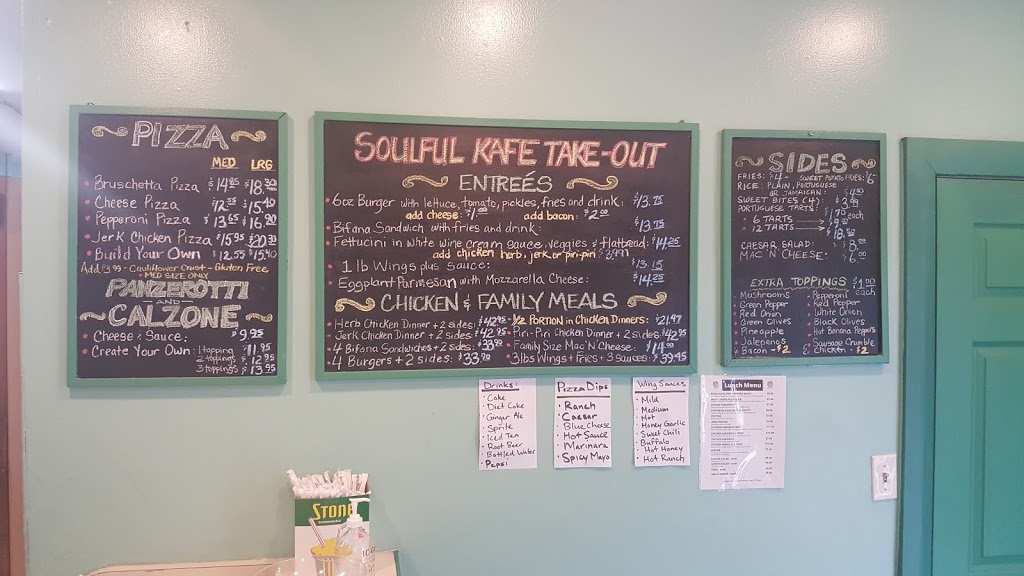 PIZZA
MED LRG
Bruschetta Pizza $14.95 $18.30
Cheese Pizza $12.55 $15.40
Pepperoni Pizza $13.65 $16.90
Jerk Chicken Pizza $15.95 $20.30
Build Your Own $12.55 $15.40
Add $3.99 - Cauliflower Crust - Gluten Free
• MED SIZE ONLY
PANZEROTTI
AND
CALZONE
Cheese & Sauce: $9.95
Create Your Own: 1 topping $11.95
2 toppings $12.95
3 toppings $13.95
SOULFUL KAFE TAKE-OUT
ENTREÉS
6oz Burger with lettuce, tomato, pickles, fries and drink: $13.75
add cheese: $1.00 add bacon: $2.00
Bifana Sandwich with fries and drink: $13.75
Fettucini in White wine cream sauce, veggies & flatbread: $14.25
add chicken herb, jerk or piri-piri
1 lb Wings plus Sauce: $13.15
Eggplant Parmesan with Mozzarella Cheese: $14.25
CHICKEN & FAMILY MEALS
Herb Chicken Dinner + 2 sides: $42.95
Jerk Chicken Dinner + 2 sides: $42.95
4 Bifana Sandwiches + 2 sides: $33.90
4 Burgers + 2 sides: $33.90
1/2 PORTION in CHICKEN DINNERS: $21.97
Piri-Piri Chicken Dinner + 2 sides: $42.95
Family Size Mac'N'Cheese: $14.00
3lbs Wings + fries + 3 sauces: $39.45
SIDES
FRIES: $4 SWEET POTATO FRIES: $6
RICE: PLAIN, PORTUGUESE
OR JAMAICAN: $4.00
SWEET BITES (4): $3.99
PORTUGUESE TARTS: $1.75 each
6 TARTS $9.00
12 TARTS $18.50
CAESAR SALAD: $8.00
MAC'N CHEESE: $6.00
EXTRA TOPPINGS $1.00
each
Mushrooms
Green Pepper
Red Onion
Green Olives
Pineapple
Jalepenos
Bacon - $2
Pepperoni
Red Pepper
White Onion
Black Olives
Hot Banana Peppers
Sausage Crumble
Chicken - $2
Drinks:
Coke
Diet Coke
Ginger Ale
Sprite
Iced Tea
Root Beer
Bottled Water
Pepsi
Pizza Dips
Ranch
Caesar
Blue Cheese
Hot Sauce
Marinara
Spicy Mayo
Wing Sauces
Mild
Medium
Hot
Honey Garlic
Sweet Chili
Buffalo
Hot Honey
Hot Ranch
Lunch Menu
STONE